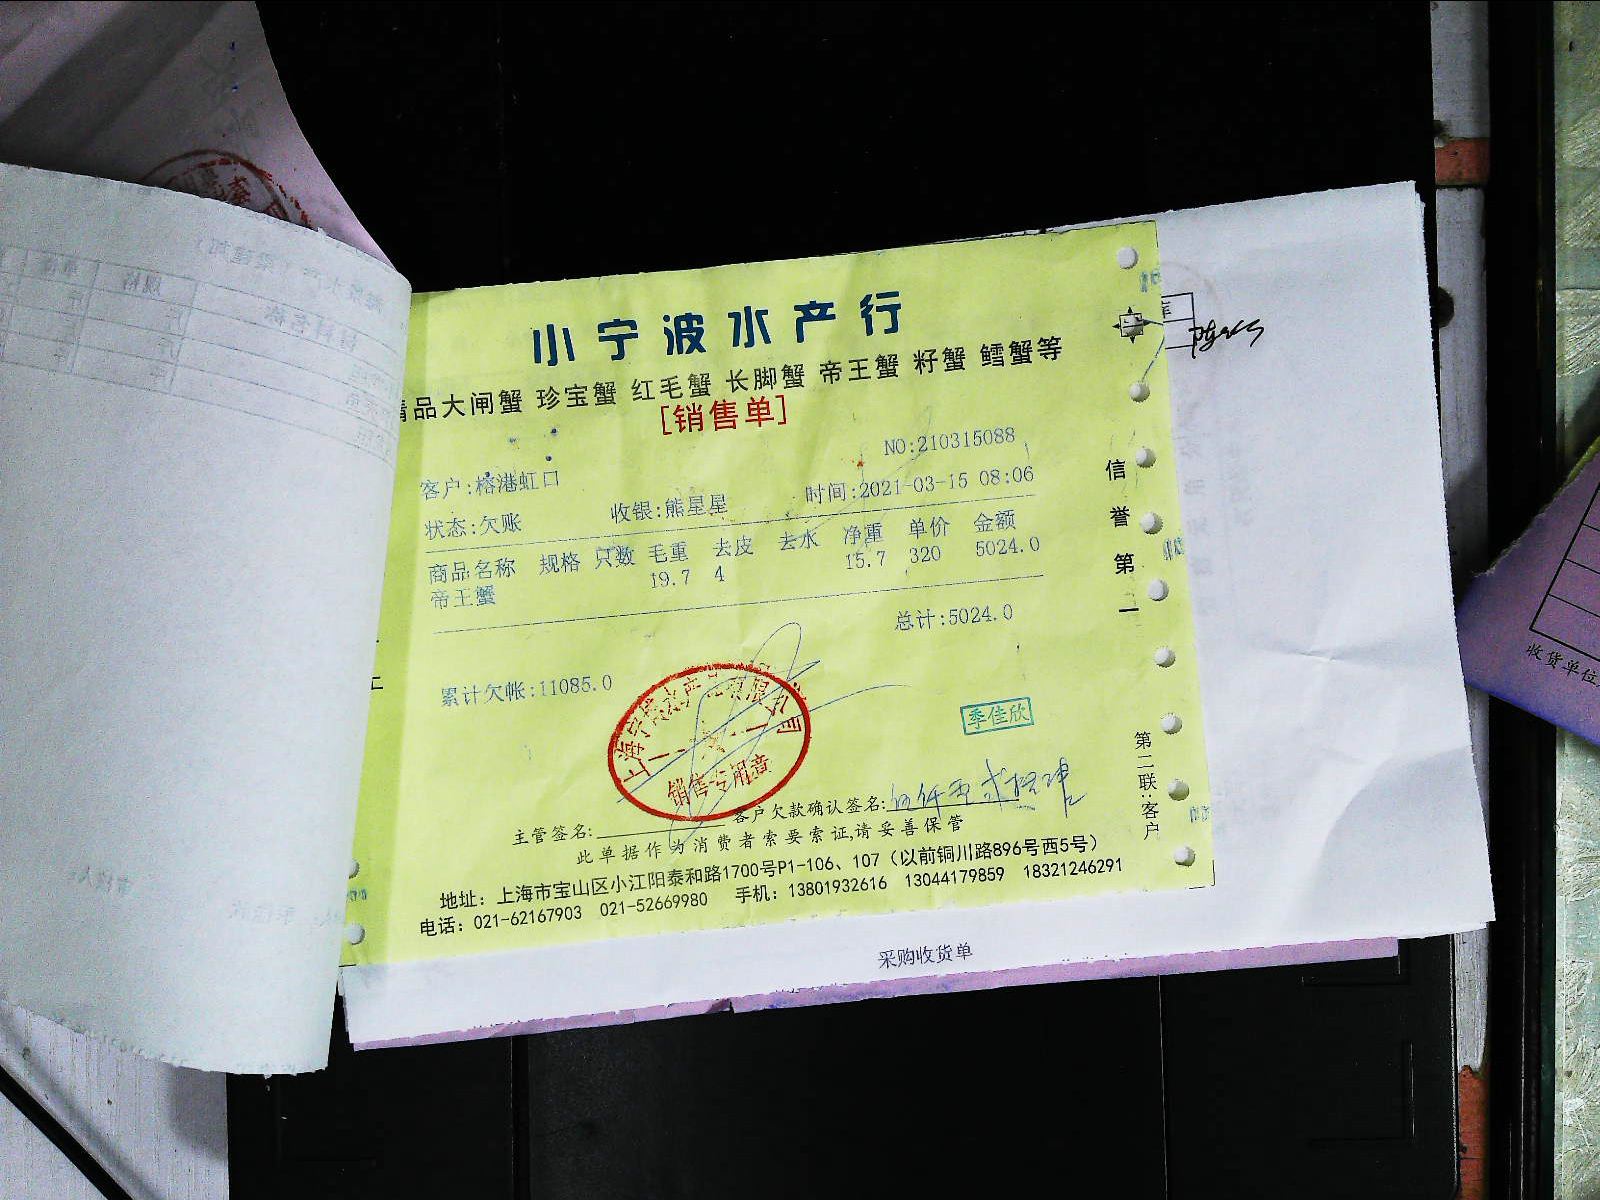 小宁波水产行
精品大闸蟹 珍宝蟹 红毛蟹 长脚蟹 帝王蟹 籽蟹 鳕蟹等
[销售单]
NO:210315088
客户:榕港虹口
时间:2021-03-15 08:06
状态:欠账 收银:熊星星
商品名称 规格 只数 毛重 去皮 去水 净重 单价 金额
帝王蟹 19.7 4 15.7 320 5024.0
总计:5024.0
累计欠帐:11085.0
季佳欣
销售专用章
主管签名: 客户欠款确认签名:
此单据作为消费者索要索证,请妥善保管
地址：上海市宝山区小江阳泰和路1700号P1-106、107（以前铜川路896号西5号）
电话：021-62167903 021-52669980 手机：13801932616 13044179859 18321246291
信誉第一
第二联:客户
采购收货单
收货单位